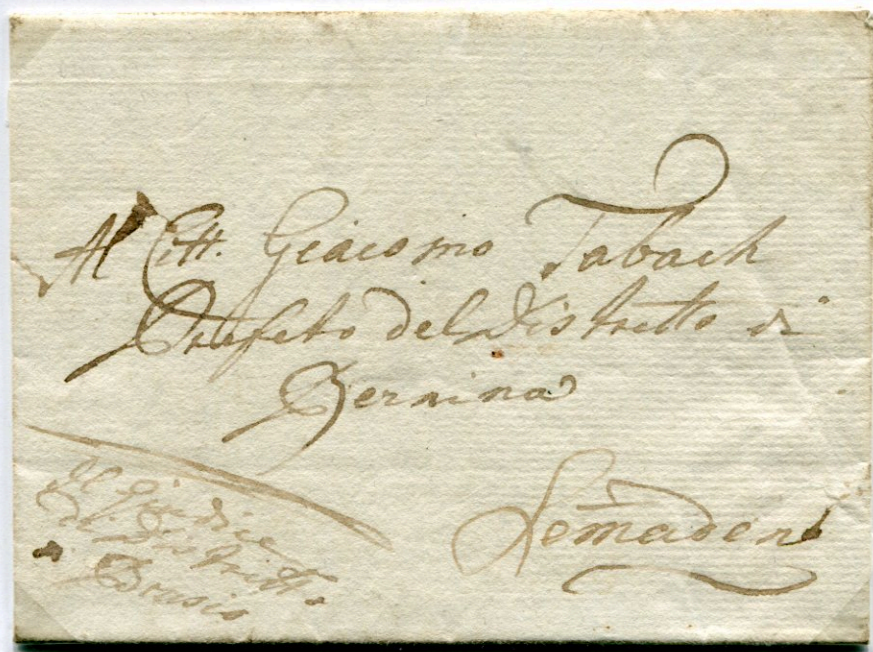 Al Citt. Giacomo Tabach
Prefetto del Distretto di
Bernina
Somaden
Il Giudice
di Distritto
Brusio